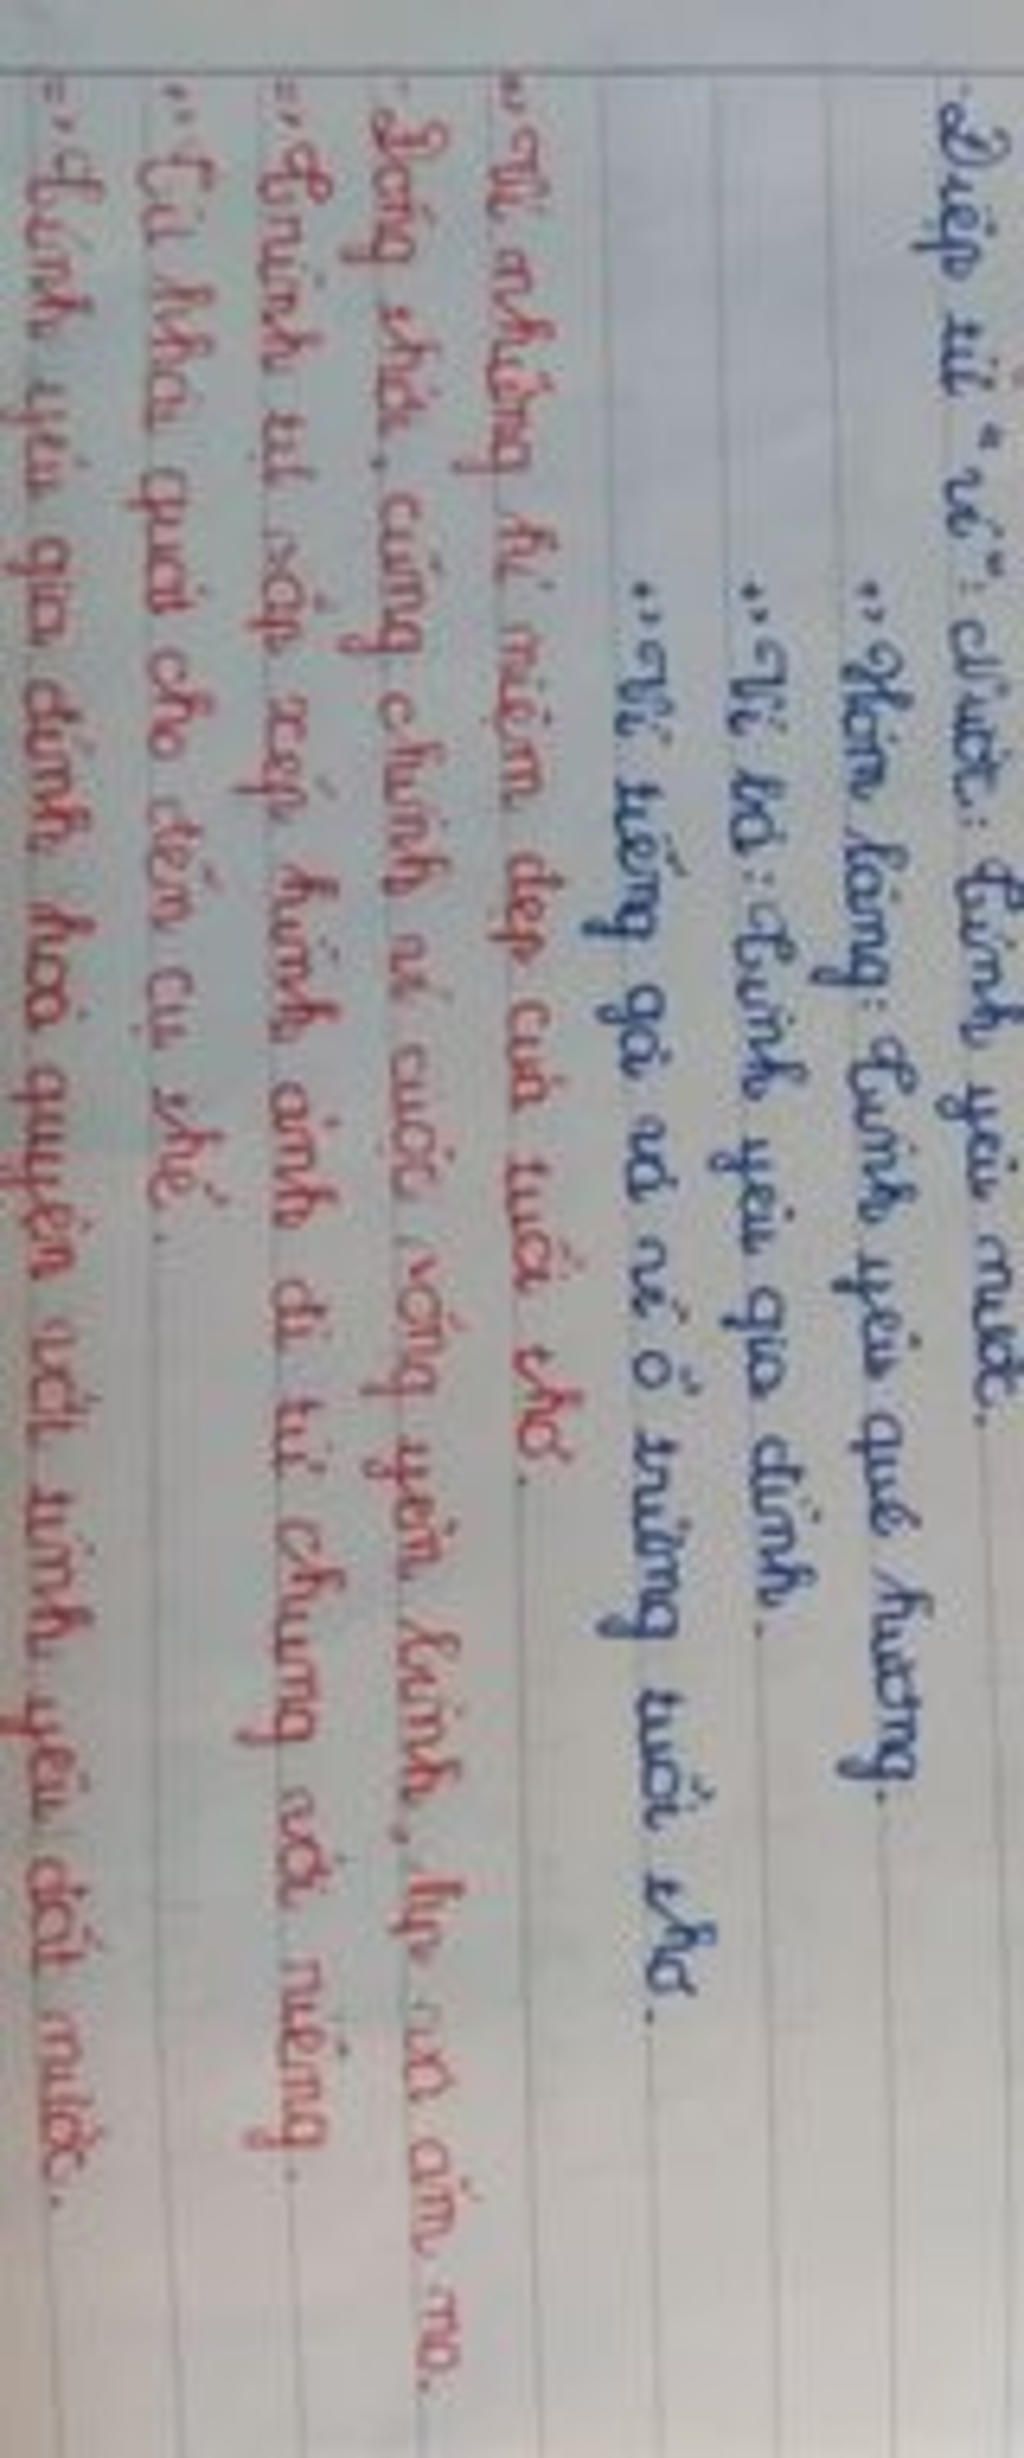 Điệp từ "vì": chước: Tình yêu nước.
+, Xóm làng: Tình yêu quê hương.
+, Vì bà: Tình yêu gia đình.
+, Vì tiếng gà và vì ổ trứng tuổi thơ.
+, Vì những kỉ niệm đẹp của tuổi thơ.
Đồng thời, cũng chính vì cuộc sống yên bình, ấp và ấm no.
=, Trình tự sắp xếp hình ảnh đi từ chung với riêng.
+, Từ khái quát cho đến cụ thể.
=, Tình yêu gia đình hoà quyện với tình yêu đất nước.